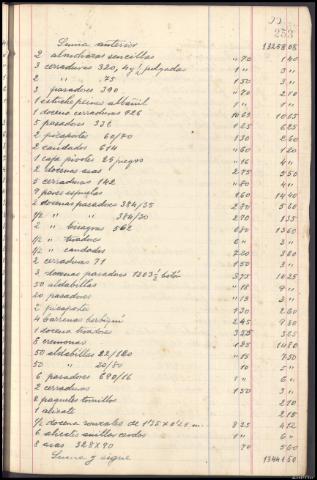 253
Suma anterior 13258 08
2 almohazas sencillas " 70 1 40
3 cerraduras 320, 4 y ½ pulgadas 1 " 3 "
2 " " 75 1 50 3 "
3 pasadores 390 " 70 2 10
1 estuche pernos albañil 1 " 1 "
1 docena cerraduras 926 10 65 10 65
5 pasadores 336 1 25 6 25
2 picaportes 60/70 1 30 2 60
2 candados 614 " 60 1 20
1 caja pivotes 25 juegos " 16 4 "
2 docenas asas 2 75 5 50
5 cerraduras 142 " 80 4 "
9 pares espuelas 1 60 14 40
2 docenas pasadores 384/35 2 80 5 60
½ " " 384/30 2 70 1 35
2 " bisagras 562 6 80 13 60
½ " tiradores 6 " 3 "
½ " candados 7 20 3 60
2 cerraduras 71 1 50 3 "
3 docenas pasadores 1303 ½ botón 3 75 14 25
50 aldabillas " 18 9 "
20 pasadores " 15 3 "
2 picaportes 1 30 2 60
4 barrenas berbiquí 2 45 9 80
1 docena tiradores 3 25 3 25
8 cremonas 1 85 14 80
50 aldabillas 22/120 " 15 7 50
50 " 20/80 10 5 "
6 pasadores 690/16 1 " 6 "
2 cerraduras 1 50 3 "
8 paquetes tornillos 2 10
1 alicate 2 15
½ docena 8 25 4 12
6 alicates 1 " 6 "
8 asas 328 x 90 70 5 60
Suma y sigue 13448 50